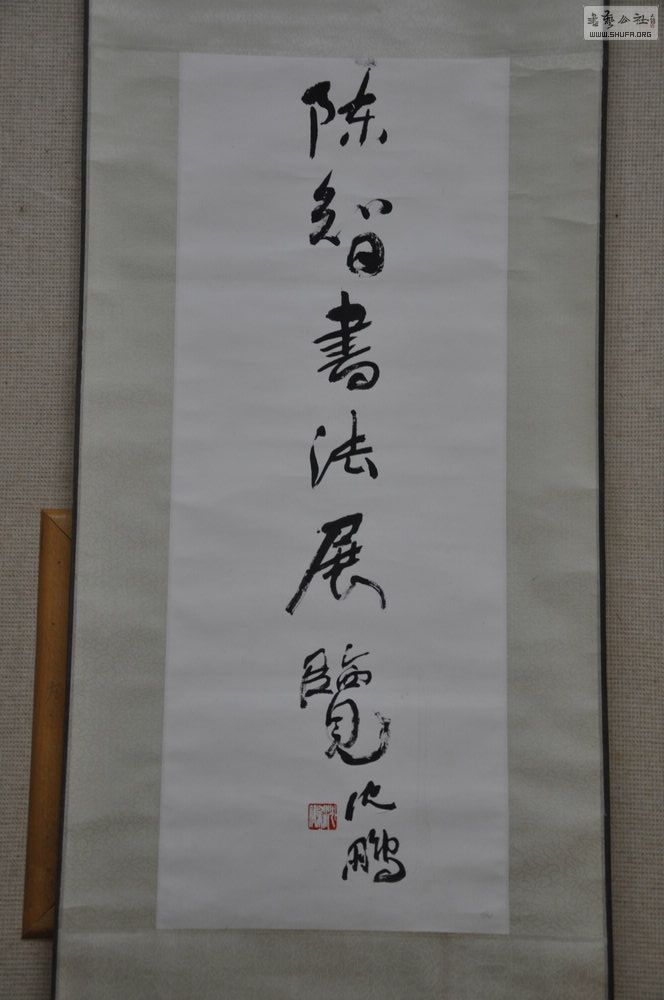 陈智書法展覽
沈鹏
書藝公社
WWW.SHUFA.ORG